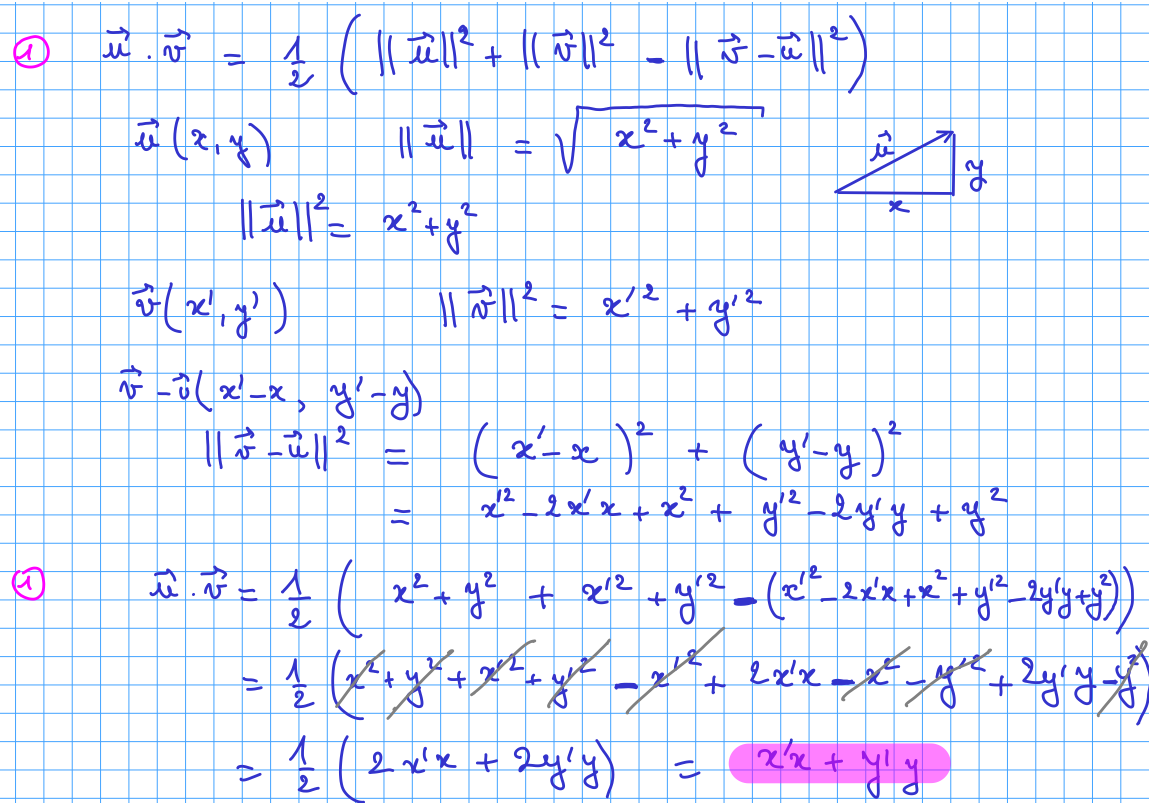 ① u⃗ . v⃗ = 1/2 ( ||u⃗||² + ||v⃗||² - ||v⃗ - u⃗||² )
u⃗ (x, y) ||u⃗|| = √(x² + y²)
u⃗
y
x
||u⃗||² = x² + y²
v⃗ (x', y') ||v⃗||² = x'² + y'²
v⃗ - u⃗ (x' - x, y' - y)
||v⃗ - u⃗||² = (x' - x)² + (y' - y)²
= x'² - 2x'x + x² + y'² - 2y'y + y²
① u⃗ . v⃗ = 1/2 ( x² + y² + x'² + y'² - (x'² - 2x'x + x² + y'² - 2y'y + y²))
= 1/2 ( x² + y² + x'² + y'² - x'² + 2x'x - x² - y'² + 2y'y - y² )
= 1/2 ( 2x'x + 2y'y ) = x'x + y'y